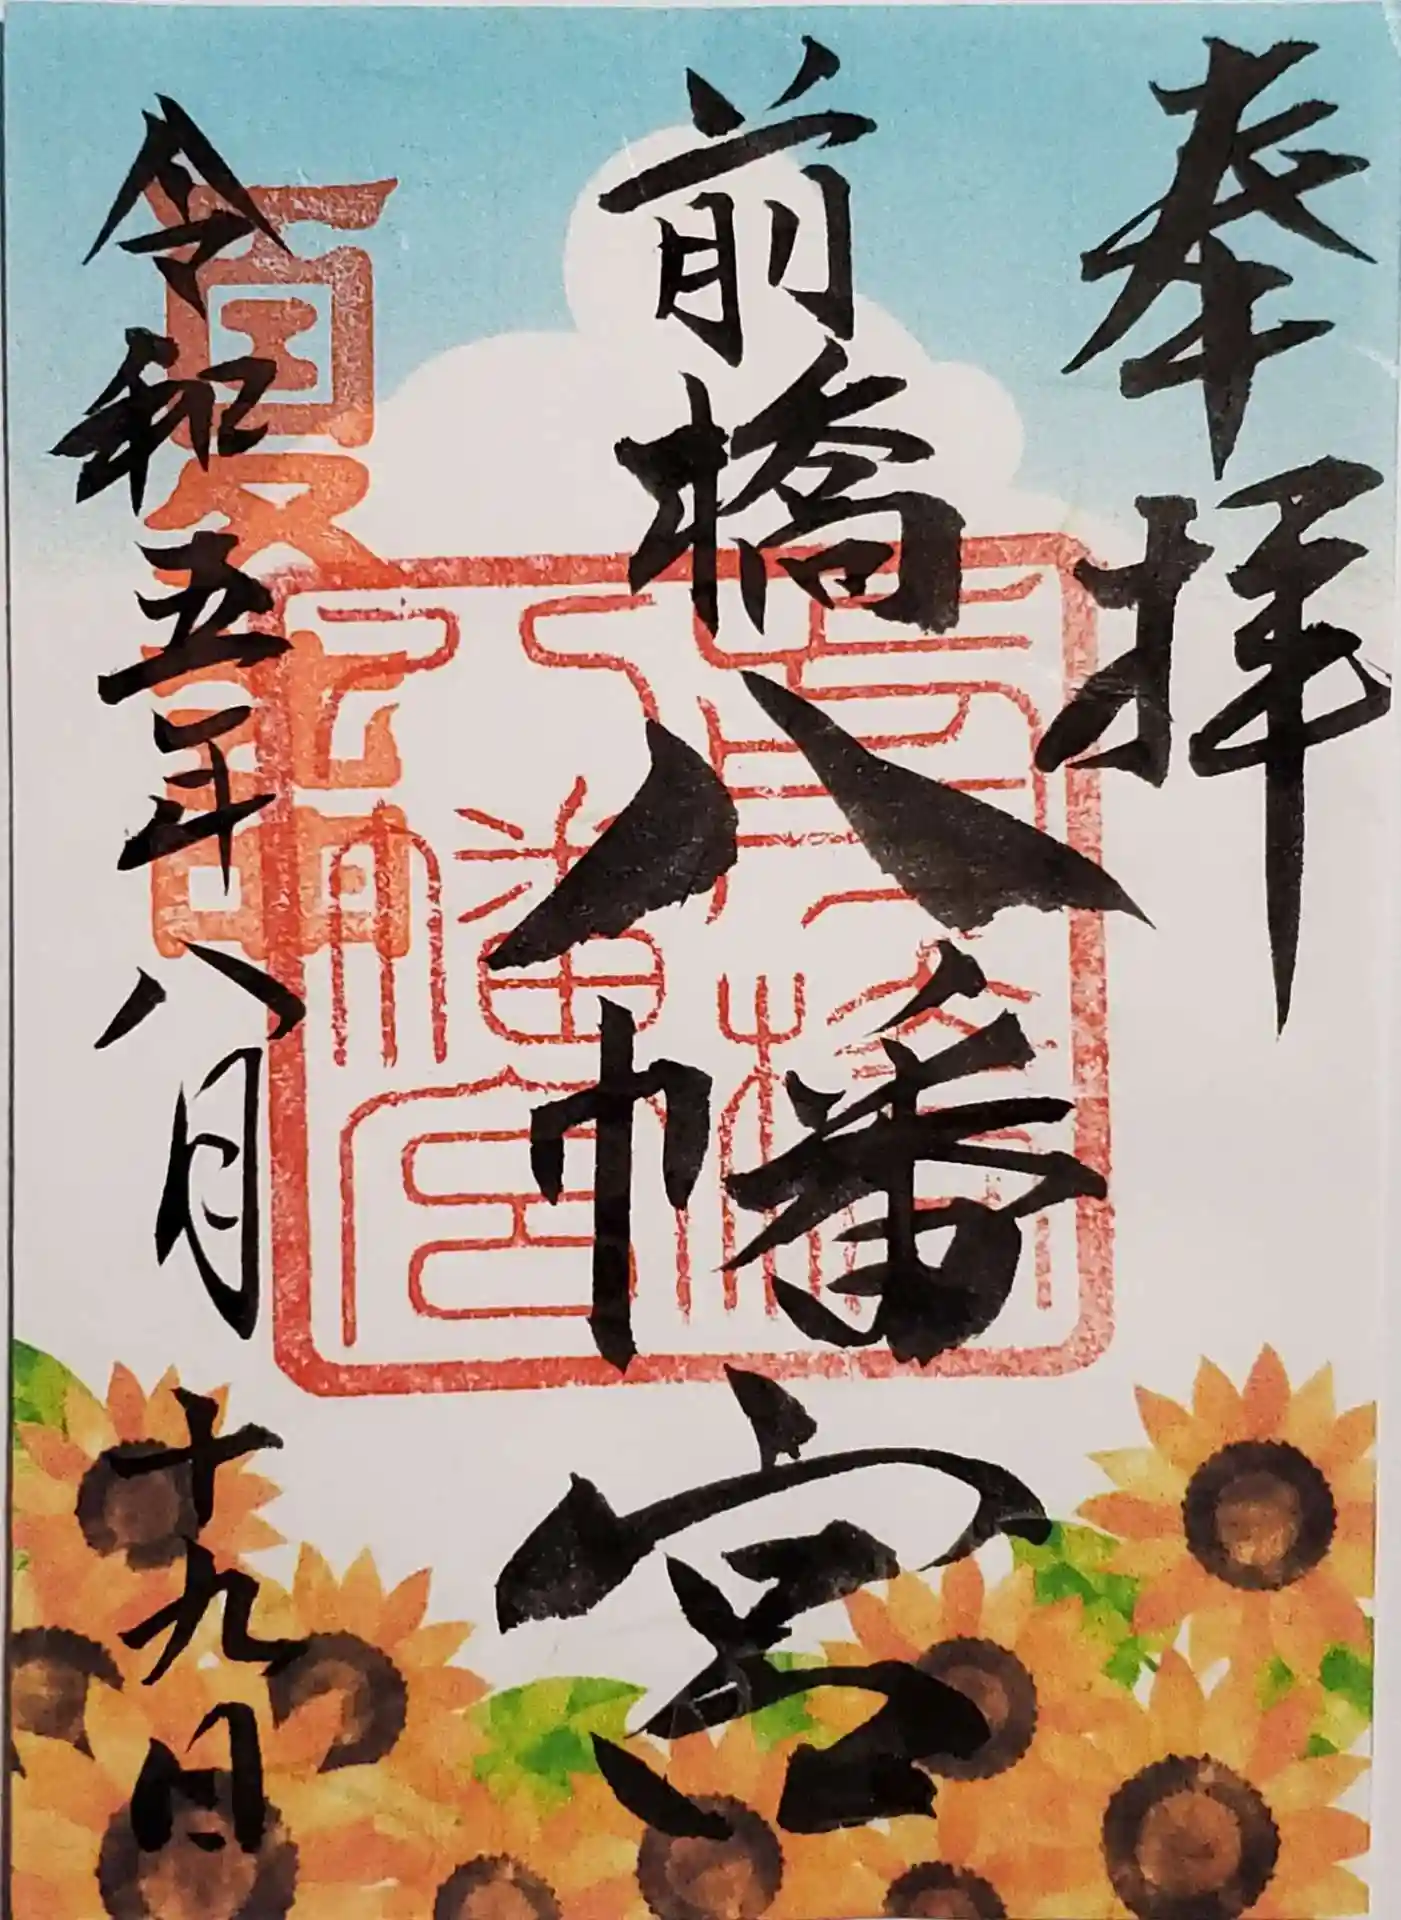 奉拝
前橋八幡宮
令和五年八月十九日
夏詣
前橋八幡宮